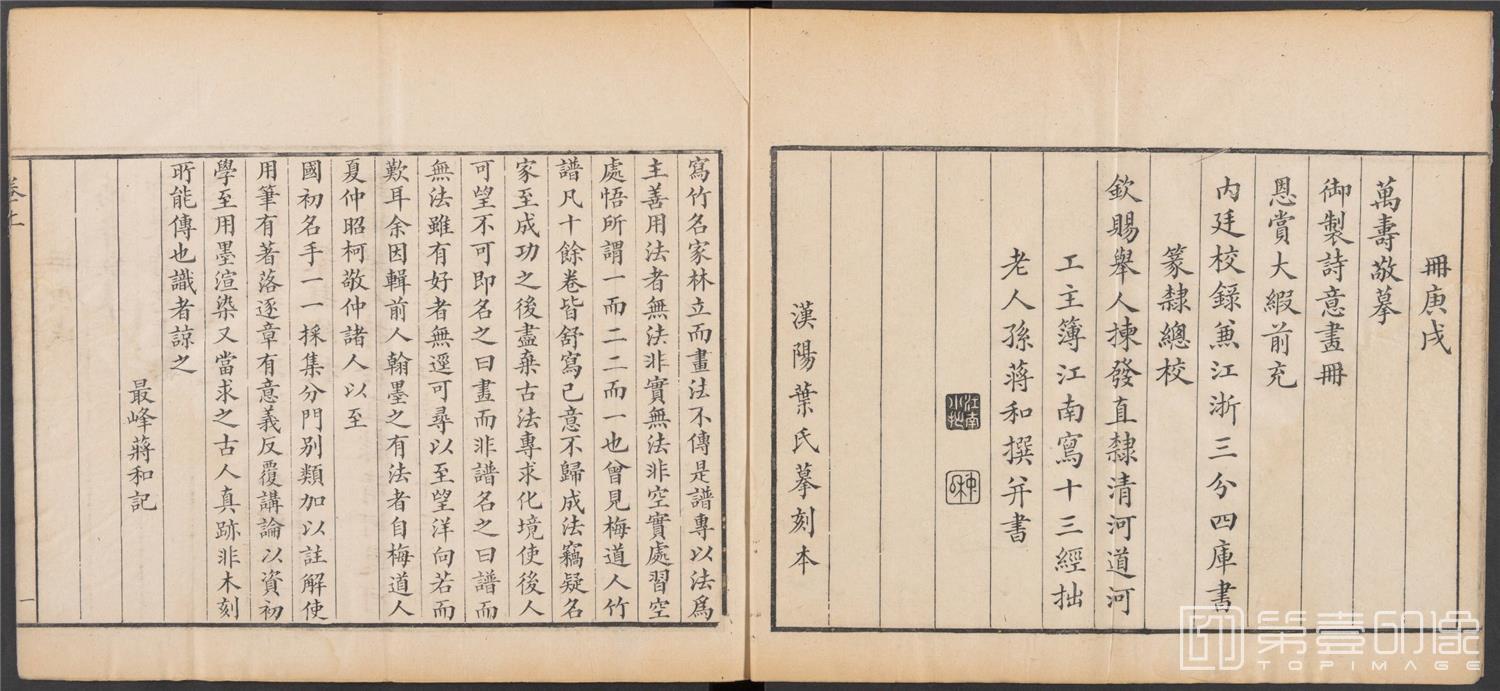 冊庚戌
萬壽敬摹
御製詩意畫冊
恩賞大緞前充
內廷校錄兼江浙三分四庫書
篆隸總校
欽賜舉人揀發直隸清河道河
工主簿江南寫十三經拙
老人孫蔣和撰并書
江南小拙
仲和
漢陽葉氏摹刻本
寫竹名家林立而畫法不傳是譜專以法爲
主善用法者無法非實無法非空實處習空
處悟所謂一而二二而一也曾見梅道人竹
譜凡十餘卷皆舒寫己意不歸成法竊疑名
家至成功之後盡棄古法專求化境使後人
可望不可即名之曰畫而非譜名之曰譜而
無法雖有好者無逕可尋以至望洋向若而
歎耳余因輯前人翰墨之有法者自梅道人
夏仲昭柯敬仲諸人以至
國初名手一一採集分門別類加以註解使
用筆有著落逐章有意義反覆講論以資初
學至用墨渲染又當求之古人真跡非木刻
所能傳也識者諒之
最峰蔣和記
卷上
一
第壹印像
TOPIMAGE